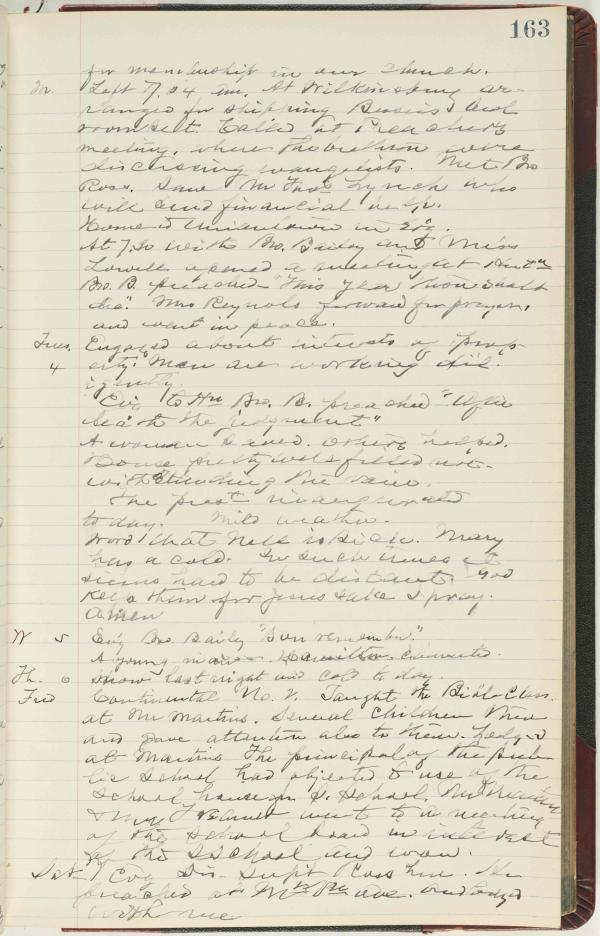 163
for membership in our church.
M. Left 7.24 am. At Wilkinsburg ar-
ranged for shipping Bessie's bed
room set. Called at Preacher's
meeting, where the brethren were
discussing evangelists. Met Bro
Ross. Saw Mr Thos Lynch who
will send financial help.
Home to Uniontown in eve'g.
At 7.30 with Bro. Bailey and Miss
Lowell opened a meeting at
Bro. B. preached "This year thou shalt
die". Mrs Reynolds forward for prayer,
and went in peace.
Tues. Engaged about interests of prop-
4 erty. Men are working dil-
igently.
Eve'g to Bro. B. preached "After
death the judgment"
A woman saved. Others helped.
House pretty well filled not-
withstanding the rain.
The prest inaugurated
today. Mild weather.
Word that Nell is sick. Mary
has a cold. In such times it
seems hard to be distant. God
keep them for Jesus sake I pray.
Amen
W 5 Eve'g Bro Bailey "Son remember."
A young man converted.
Th. 6 Snow last night and cold to day.
Frid Continental No. 2. Taught the Bible Class
at Mr Martins. Several children there
and gave attention also to them. Lodged
at Martins The principal of the pub-
lic school had objected to use of the
school house for S. School. Mr Martin
& went to a meeting
of the school board in interest
of the S School and won.
Sat Eve'g Dis. Supt Ross here. He
preached at ave. and lodged
with me